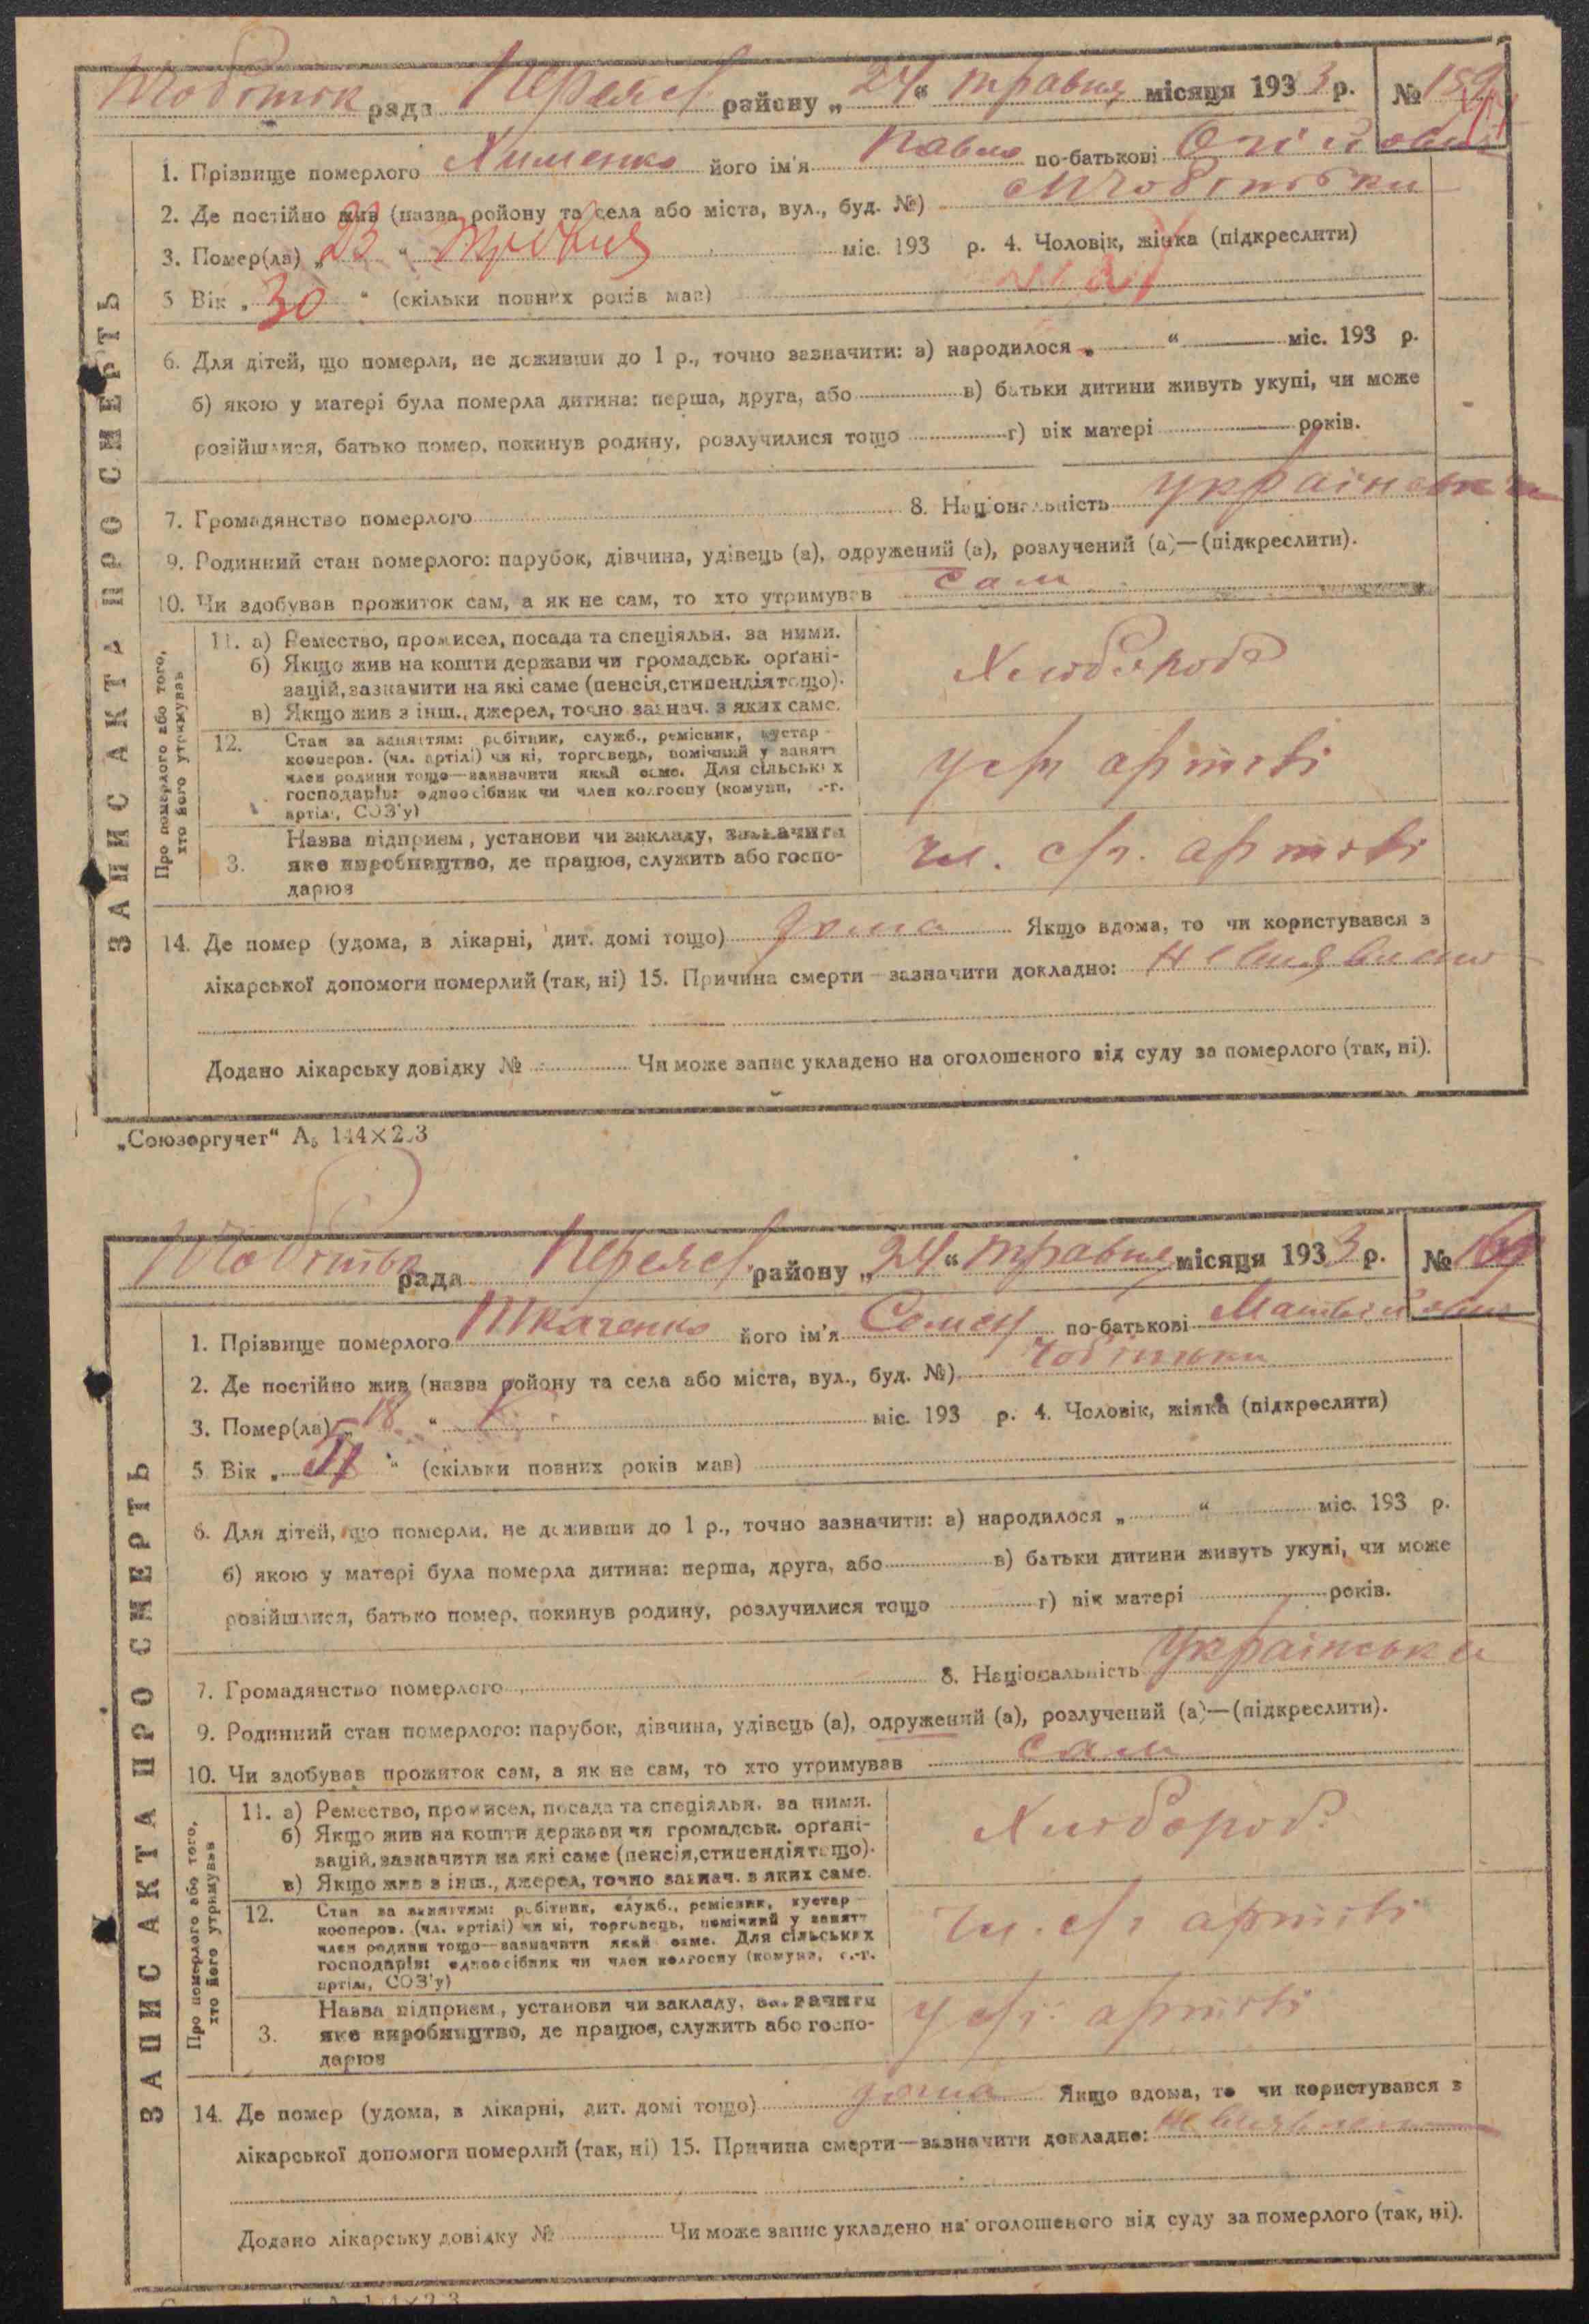 рада Переясл. району „24“ травня місяця 1933 р. № 159
1. Прізвище померлого Хименко його ім'я Павло по-батькові
2. Де постійно жив (назва ройону та села або міста, вул., буд. №)
3. Помер(ла) „23“ травня міс. 193 р. 4. Чоловік, жінка (підкреслити)
5 Вік „30“ (скільки повних років мав)
6. Для дітей, що померли, не доживши до 1 р., точно зазначити: а) народилося „ “ міс. 193 р.
б) якою у матері була померла дитина: перша, друга, або в) батьки дитини живуть укупі, чи може
розійшлися, батько помер, покинув родину, розлучилися тощо г) вік матері років.
7. Громадянство померлого 8. Національність українська
9. Родинний стан померлого: парубок, дівчина, удівець (а), одружений (а), розлучений (а)—(підкреслити).
10. Чи здобував прожиток сам, а як не сам, то хто утримував сам
ЗАПИС АКТА ПРО СМЕРТЬ
Про померлого або того,
хто його утримував
11. а) Ремество, промисел, посада та спеціяльн. за ними.
б) Якщо жив на кошти держави чи громадськ. орґані-
зацій, зазначити на які саме (пенсія, стипендія тощо).
в) Якщо жив з інш., джерел, точно зазнач. з яких саме.
Хлібороб
12. Стан за заняттям: робітник, служб., ремісник, кустар
кооперов. (чл. артілі) чи ні, торговець, помічний у занятт
член родини тощо—зазначити який саме. Для сільських
господарів: одноосібник чи член колгоспу (комуни, с.-г.
артілі, СОЗ'у)
артілі
3. Назва підприєм, установи чи закладу, зазначити
яке виробництво, де працює, служить або госпо-
дарює
чл. с/г. артілі
14. Де помер (удома, в лікарні, дит. домі тощо) дома Якщо вдома, то чи користувався з
лікарської допомоги померлий (так, ні) 15. Причина смерти—зазначити докладно: не виявлено
Додано лікарську довідку № Чи може запис укладено на оголошеного від суду за померлого (так, ні).
„Союзоргучет“ А₅ 144×203
рада Переясл. району „24“ травня місяця 1933 р. №
1. Прізвище померлого Ткаченко його ім'я Семен по-батькові Матвійович
2. Де постійно жив (назва ройону та села або міста, вул., буд. №) Чобітьки
3. Помер(ла) „18“ міс. 193 р. 4. Чоловік, жінка (підкреслити)
5 Вік „ “ (скільки повних років мав)
6. Для дітей, що померли, не доживши до 1 р., точно зазначити: а) народилося „ “ міс. 193 р.
б) якою у матері була померла дитина: перша, друга, або в) батьки дитини живуть укупі, чи може
розійшлися, батько помер, покинув родину, розлучилися тощо г) вік матері років.
7. Громадянство померлого 8. Національність українська
9. Родинний стан померлого: парубок, дівчина, удівець (а), одружений (а), розлучений (а)—(підкреслити).
10. Чи здобував прожиток сам, а як не сам, то хто утримував сам
ЗАПИС АКТА ПРО СМЕРТЬ
Про померлого або того,
хто його утримував
11. а) Ремество, промисел, посада та спеціяльн. за ними.
б) Якщо жив на кошти держави чи громадськ. орґані-
зацій, зазначити на які саме (пенсія, стипендія тощо).
в) Якщо жив з інш., джерел, точно зазнач. з яких саме.
Хлібороб
12. Стан за заняттям: робітник, служб., ремісник, кустар
кооперов. (чл. артілі) чи ні, торговець, помічний у занятт
член родини тощо—зазначити який саме. Для сільських
господарів: одноосібник чи член колгоспу (комуни, с.-г.
артілі, СОЗ'у)
чл. с/г артілі
3. Назва підприєм, установи чи закладу, зазначити
яке виробництво, де працює, служить або госпо-
дарює
у с/г. артілі
14. Де помер (удома, в лікарні, дит. домі тощо) дома Якщо вдома, то чи користувався з
лікарської допомоги померлий (так, ні) 15. Причина смерти—зазначити докладно: не виявлено
Додано лікарську довідку № Чи може запис укладено на оголошеного від суду за померлого (так, ні).